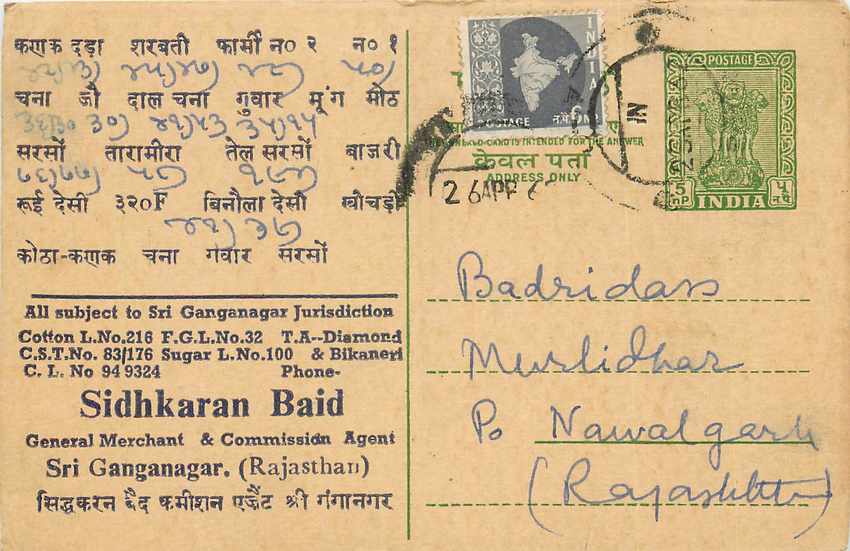 कणक दड़ा शरबती फार्मी न० २ न० १
चना जौ दाल चना गुवार मूंग मोठ
सरसों तारामीरा तेल सरसों बाजरी
रूई देसी ३२०F बिनौला देसी खीचड़ी
कोठा-कणक चना गंवार सरसों
All subject to Sri Ganganagar Jurisdiction
Cotton L.No.216 F.G.L.No.32 T.A--Diamond
C.S.T.No. 83/176 Sugar L.No.100 & Bikaneri
C. L. No 94 9324 Phone-
Sidhkaran Baid
General Merchant & Commission Agent
Sri Ganganagar. (Rajasthan)
सिद्धकरन बैद कमीशन एजेंट श्री गंगानगर
INDIA
POSTAGE न.पै. 6 NP.
CARD IS INTENDED FOR THE ANSWER
केवल पता
ADDRESS ONLY
26 APR
POSTAGE
5 NP INDIA ५ न.पै.
Badridass
Murlidhar
Po Nawalgarh
(Rajasthan)